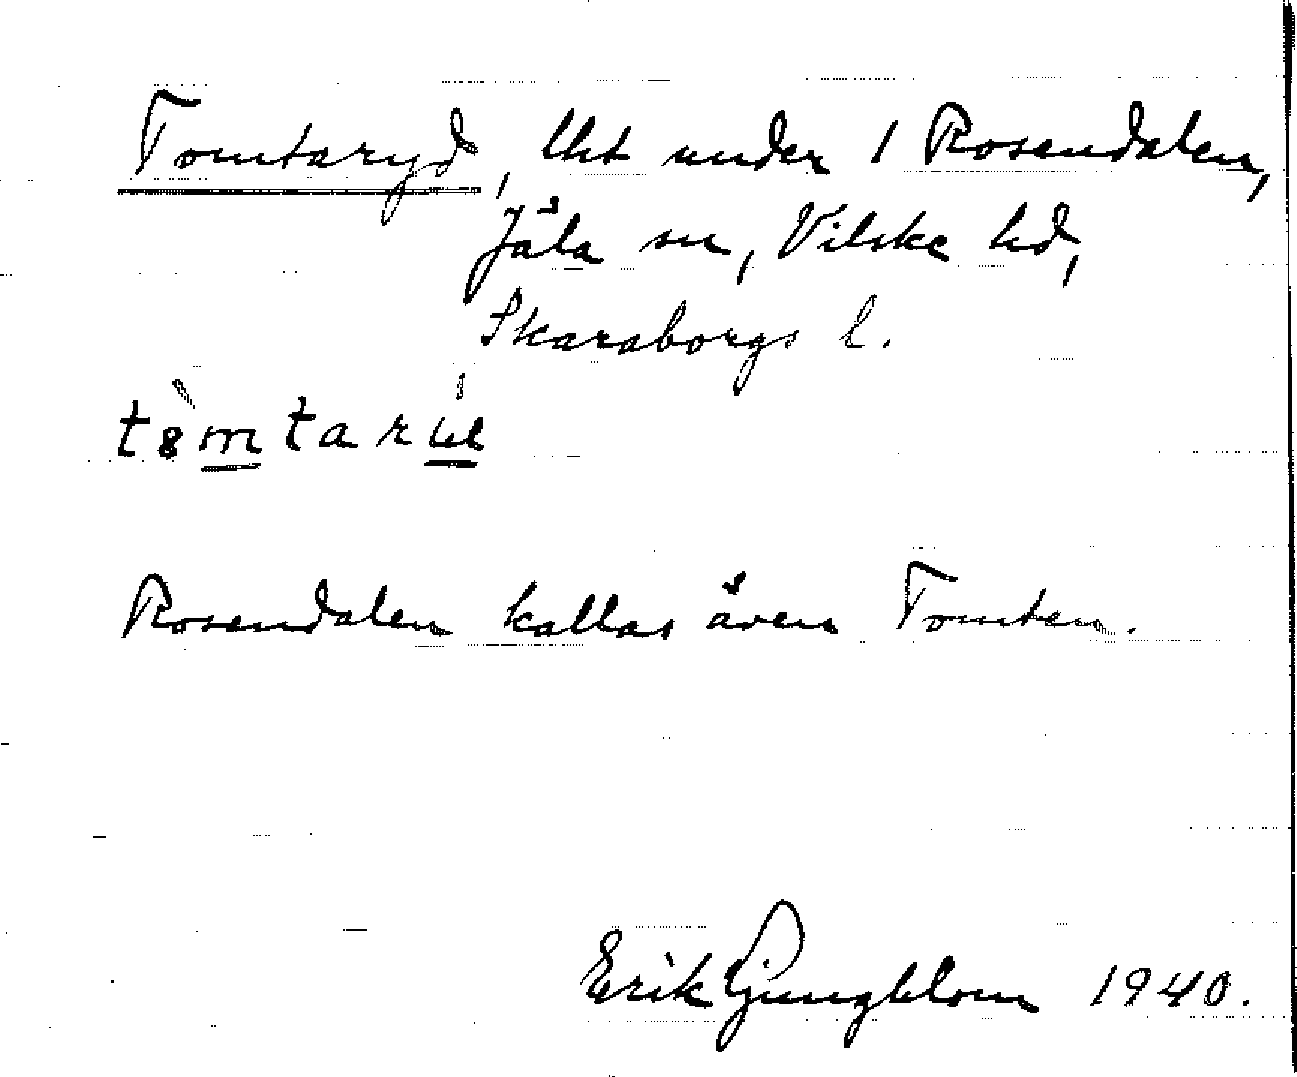 Tomtaryd, Uht under 1 Rosendalen,
Jäla sn, Vilske hd,
Skaraborgs l.
Rosendalen kallas även Tomten.
Erik Ljungblom 1940.